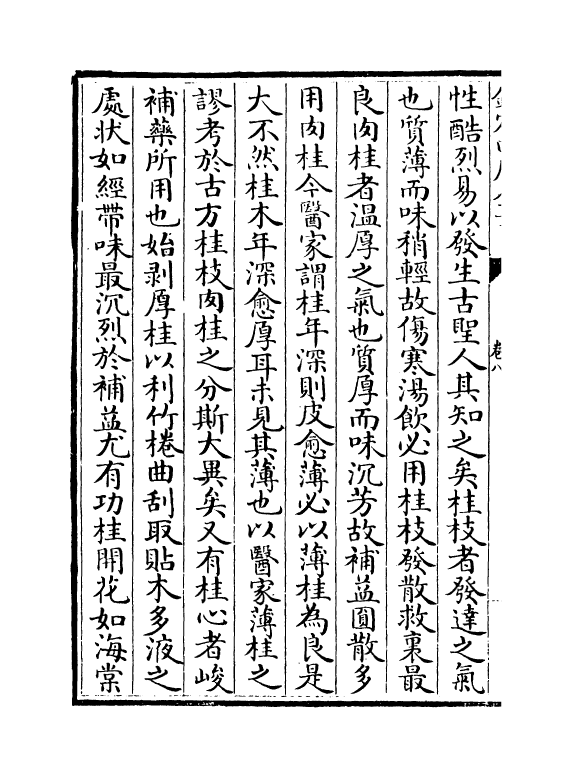 性酷烈易以發生古聖人其知之矣桂枝者發達之氣
也質薄而味稍輕故傷寒湯飲必用桂枝發散救裏最
良肉桂者温厚之氣也質厚而味沉芳故補益圓散多
用肉桂今醫家謂桂年深則皮愈薄必以薄桂為良是
大不然桂木年深愈厚耳未見其薄也以醫家薄桂之
謬考於古方桂枝肉桂之分斯大異矣又有桂心者峻
補藥所用也始剥厚桂以利竹棬曲刮取貼木多液之
處状如經帶味最沉烈於補益尤有功桂開花如海棠
卷八